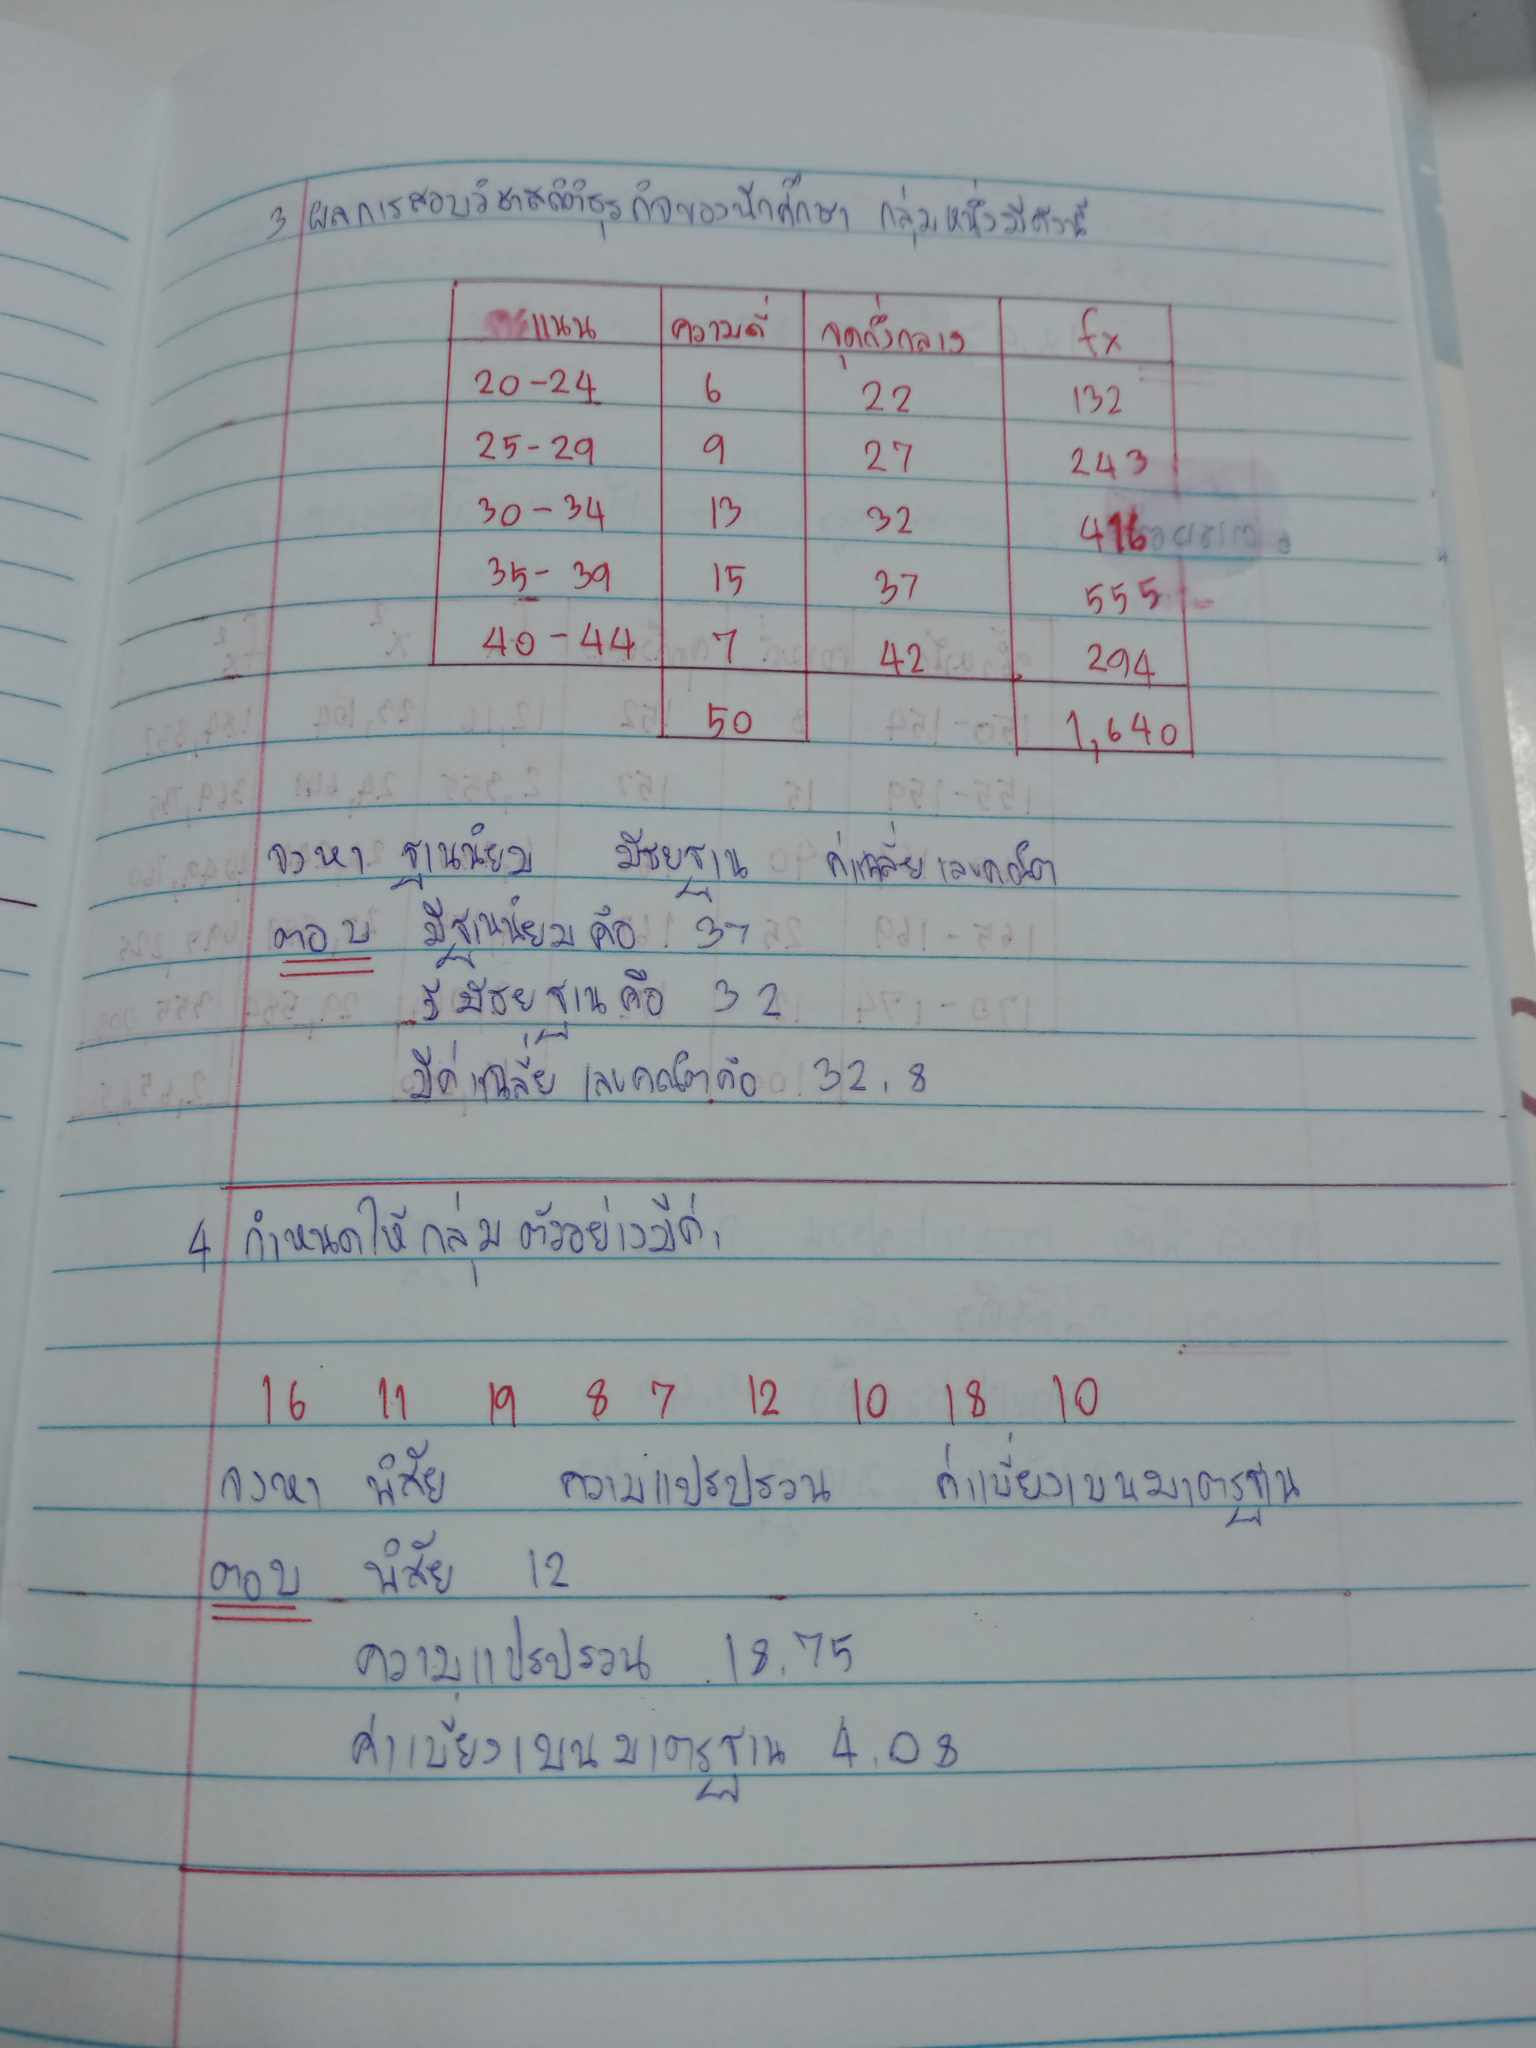 3 ผลการสอบวิชาสถิติธุรกิจของนักศึกษา กลุ่มหนึ่งมีดังนี้
คะแนน ความถี่ จุดกึ่งกลาง fx
20-24 6 22 132
25-29 9 27 243
30-34 13 32 416
35-39 15 37 555
40-44 7 42 294
50 1,640
จงหา ฐานนิยม มัธยฐาน ค่าเฉลี่ยเลขคณิต
ตอบ มีฐานนิยมคือ 37
มีมัธยฐานคือ 32
มีค่าเฉลี่ยเลขคณิตคือ 32.8
4 กำหนดให้กลุ่มตัวอย่างมีค่า
16 11 19 8 7 12 10 18 10
จงหา พิสัย ความแปรปรวน ค่าเบี่ยงเบนมาตรฐาน
ตอบ พิสัย 12
ความแปรปรวน 18.75
ค่าเบี่ยงเบนมาตรฐาน 4.08